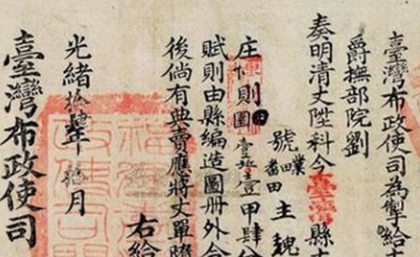 臺灣布政使司為掣給
爵撫部院劉
奏明清丈陞科今臺灣縣
號
業
田
田主魏
庄
則園
甲
賦則由縣編造圖冊外合
後倘有典賣應將丈單
右給
光緒拾肆年拾月
臺灣布政使司